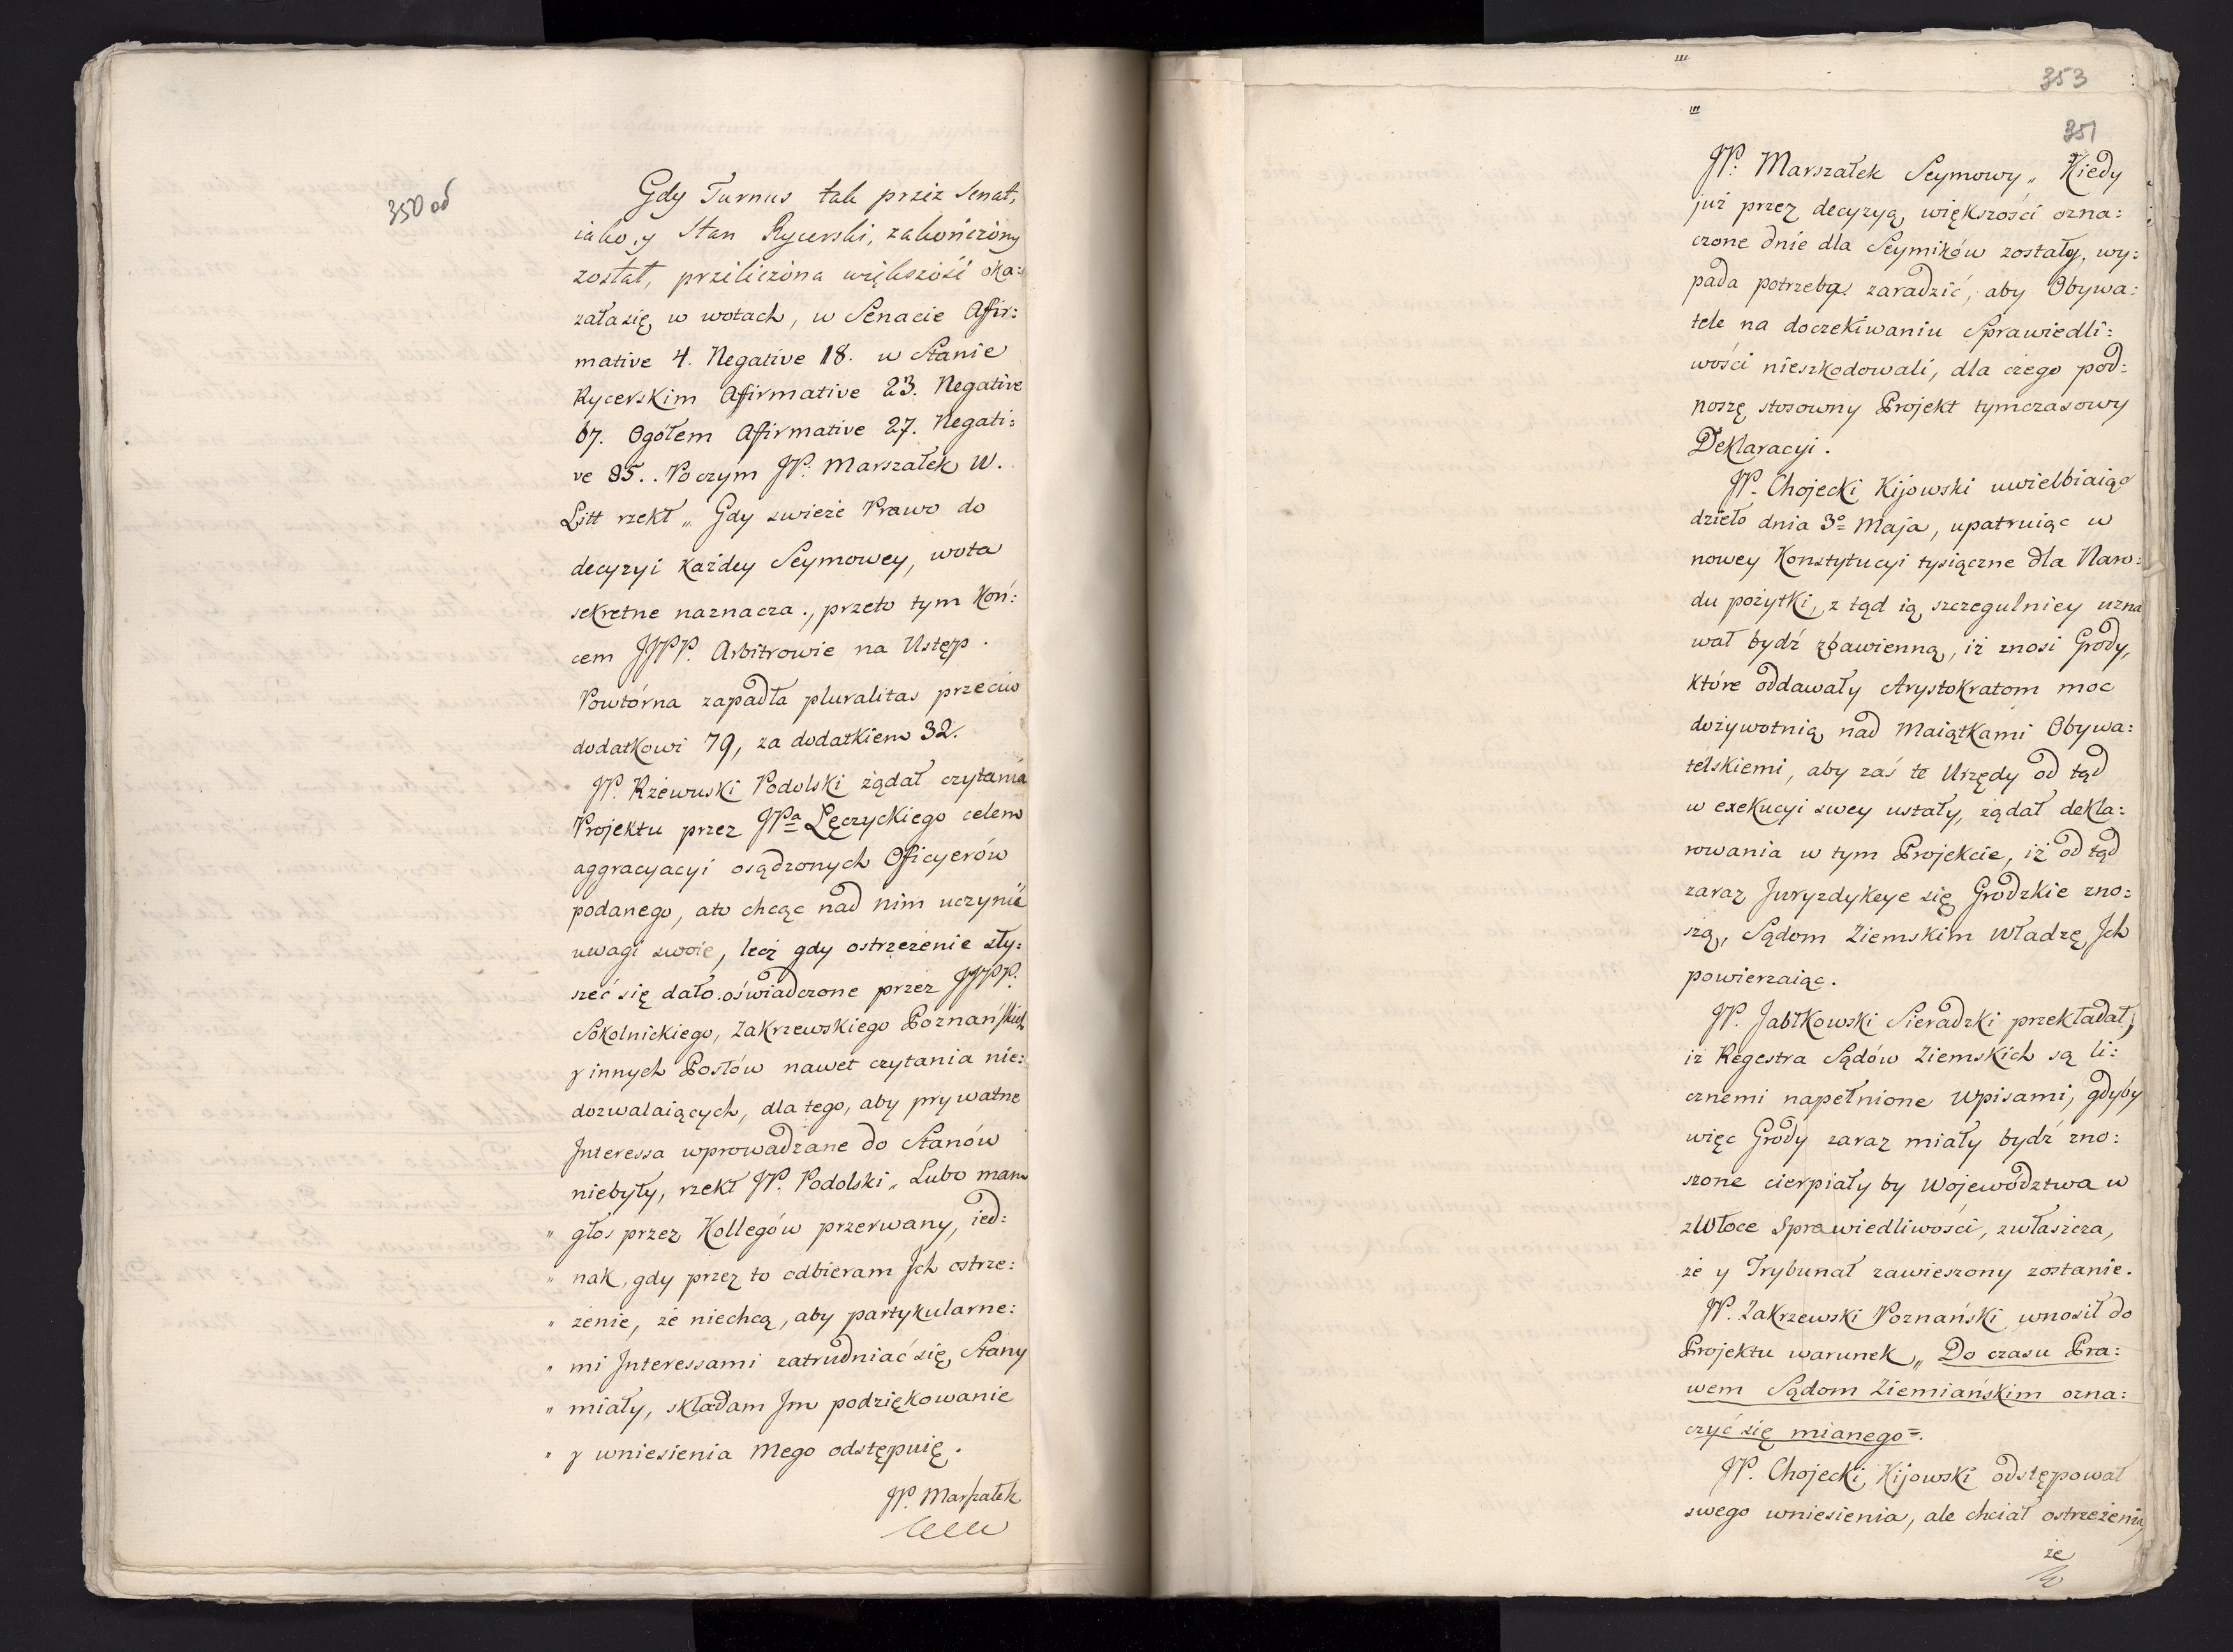 350 od
Gdy Turnus tak przez Senat,
iako, y Stan Rycerski, zakończony
został, przeliczona większość oka:
załasię, w wotach, w Senacie Affir:
mative 4. Negative 18. w Stanie
Rycerskim Affirmative 23. Negative
67. Ogółem Affirmative 27. Negati:
ve 85.. Poczym JP. Marszałek W.
Litt rzekł „ Gdy swieże Prawo do
decyzyi każdey Seymowey, wota
sekretne naznacza., przeto tym koń:
cem JJPP. Arbitrowie na Ustęp.
Powtórna zapadła pluralitas przeciw
dodatkowi 79, za dodatkiem 32.
JP. Rzewuski Podolski żądał czytania
Projektu przez JPa Łęczyckiego celem
aggracyacyi osądzonych Officyerów
podanego, ato chcąc nad nim uczynić
uwagi swoie, lecz gdy ostrzeżenie sły:
szeć się dało oświadczone przez JJPP.
Sokolnickiego, Zakrzewskiego Poznańskich
y innych Posłów nawet czytania nie:
dozwalaiących, dla tego, aby prywatne
Interessa wprowadzane do Stanów
niebyły, rzekł JP. Podolski „ Lubo mam
„ głos przez Kollegów przerwany, ied:
„ nak, gdy przez to odbieram Ich ostrze:
„ żenie, że niechcą, aby partykularne:
„ mi Interessami zatrudniać się, Stany
„ miały, składam Im podziękowanie
„ y wniesienia Mego odstępuię.
JP. Marszałek
353
351
JP. Marszałek Seymowy „ Kiedy
już przez decyzyą, większości ozna:
czone dnie dla Seymików zostały, wy:
pada potrzeba zaradzić, aby Obywa:
tele na doczekiwaniu Sprawiedli:
wości nieszkodowali, dla czego pod:
noszę stosowny Projekt tymczasowy
Deklaracyi.
JP. Chojecki Kijowski uwielbiaiąc
dzieło dnia 3o Maja, upatruiąc w
nowey Konstytucyi tysiączne dla Naro:
du pożytki, z tąd ią, szczegulniey uzna
wał bydź zbawienną, iż znosi Grody,
które oddawały Arystokratom moc
dożywotnią nad Maiątkami Obywa:
telskiemi, aby zaś te Urzędy od tąd
w exekucyi swey ustały, żądał dekla:
rowania w tym Projekcie, iż od tąd
zaraz Juryzdykcye się Grodzkie zno:
szą, Sądom Ziemskim Władzę Ich
powierzaiąc.
JP. Jabłkowski Sieradzki przekładał,
iż Regestra Sądów Ziemskich są li:
cznemi napełnione Wpisami, gdyby
więc Grody zaraz miały bydź zno:
szone cierpiały by Województwa w
zWłoce Sprawiedliwości, zwłaszcza,
że y Trybunał zawieszony zostanie.
JP. Zakrzewski Poznański wnosił do
Projektu warunek „ Do czasu Pra:
wem Sądom Ziemiańskim ozna:
czyć się mianego =.
JP. Chojecki Kijowski odstępował
swego wniesienia, ale chciał ostrzeżenia
że